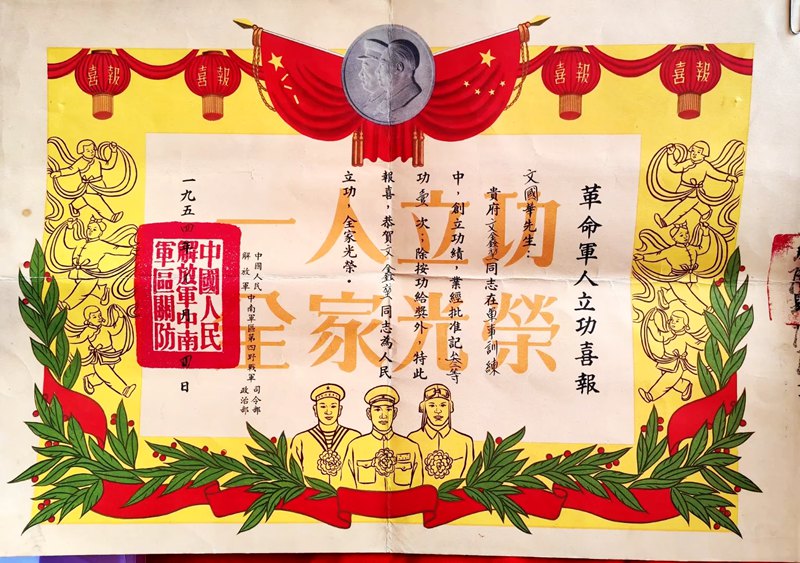 喜報
喜報
喜報
喜報
一人立功
全家光榮
革命軍人立功喜報
文國華先生：
貴府文鑫同志在軍事訓練
中，創立功績，業經批准記叁等
功壹次；除按功給獎外，特此
報喜，恭賀文鑫同志為人民
立功，全家光榮。
中國人民
解放軍
中南軍區第四野戰軍
司令部
政治部
一九五四年月四日
中國人民
解放軍中南
軍區關防